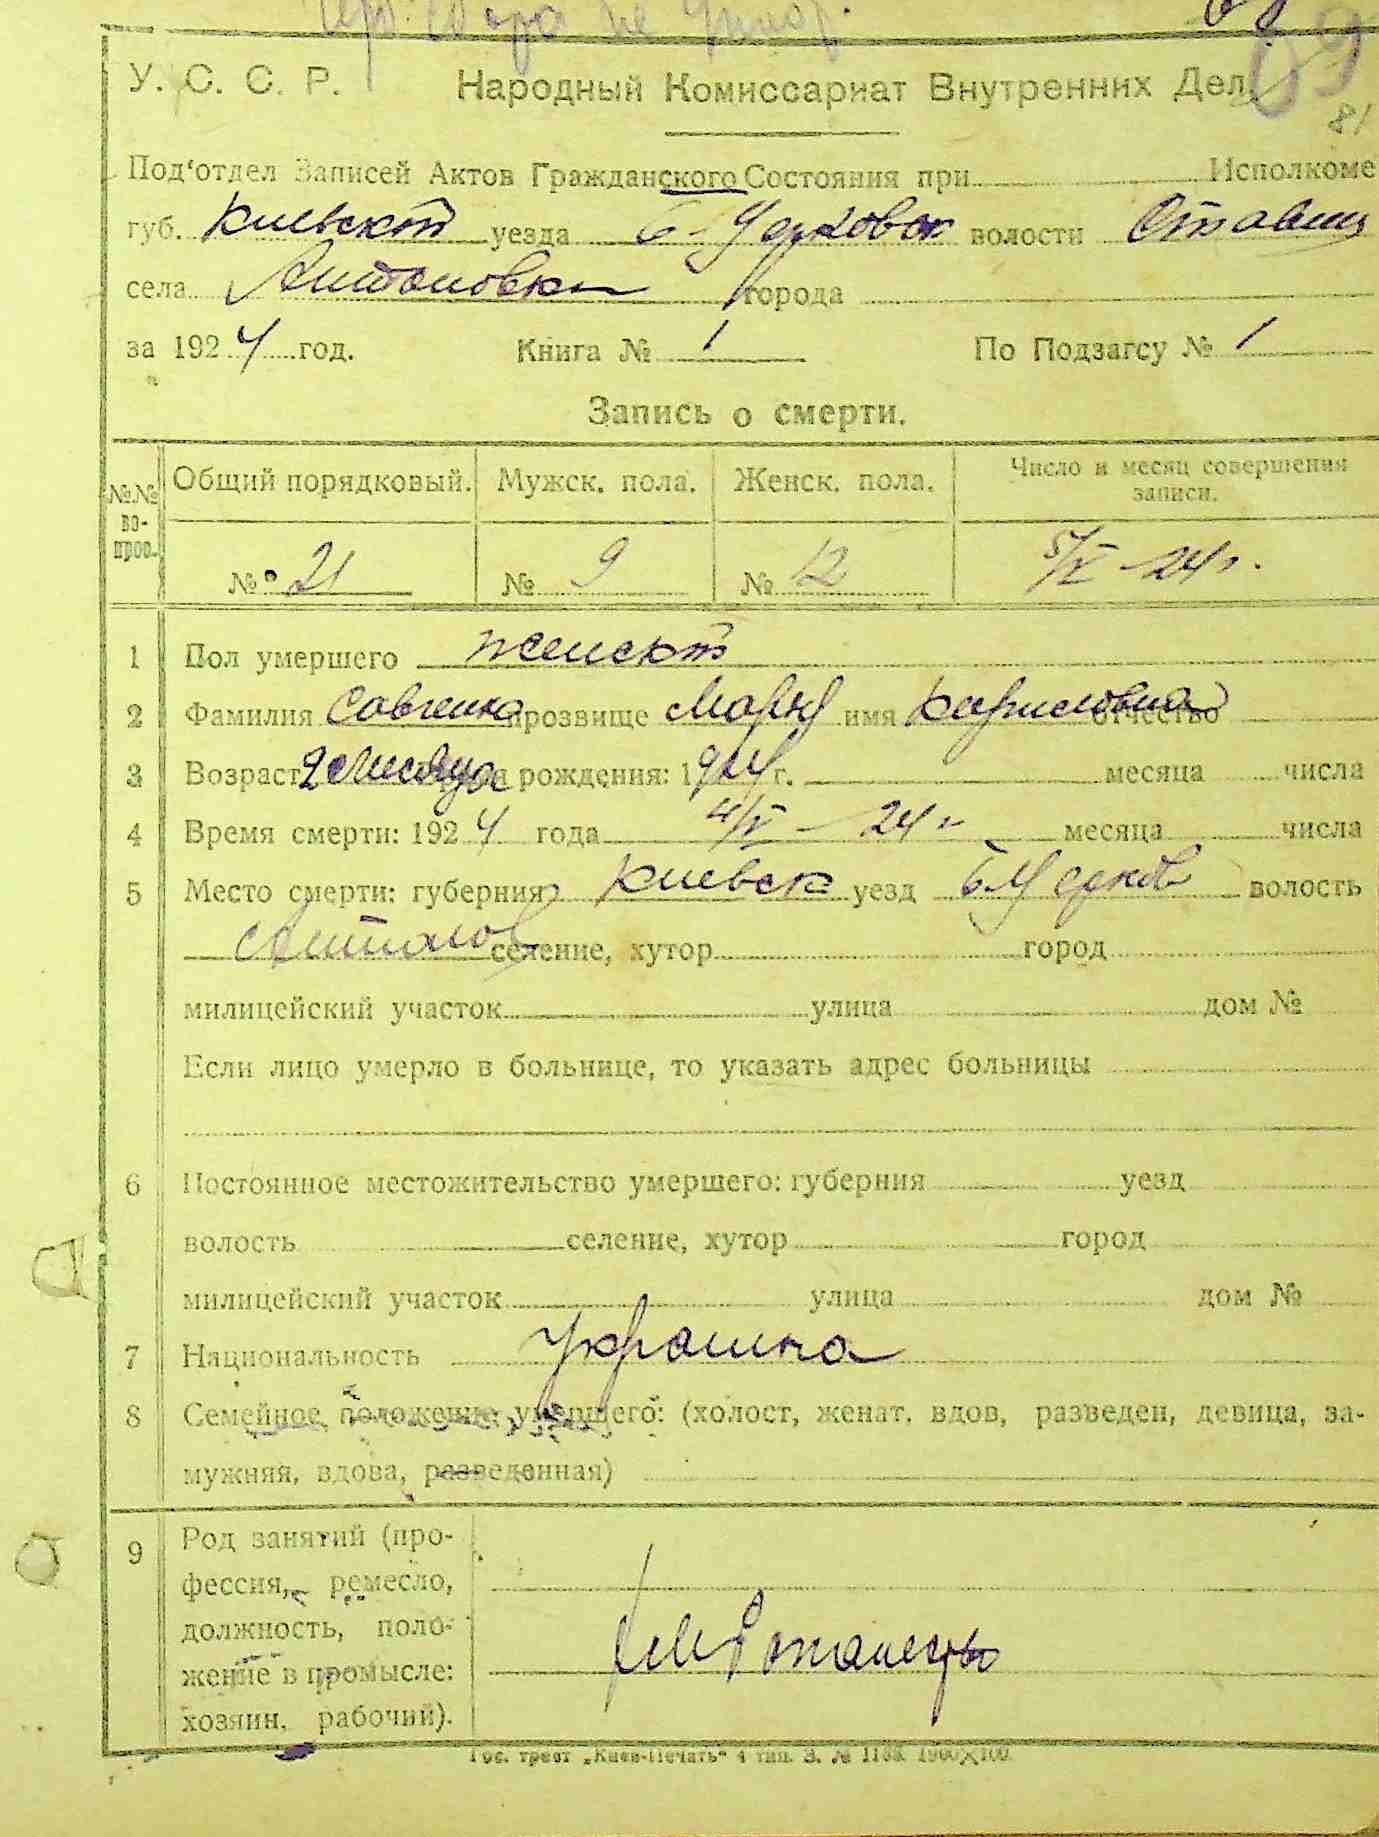 У. С. С. Р. Народный Комиссариат Внутренних Дел.
81
Под'отдел Записей Актов Гражданского Состояния при Исполкоме
губ. Киевской уезда Б-Церковск волости Ставищ
села Антоновки города
за 1924 год. Книга № 1 По Подзагсу № 1
Запись о смерти.
№№ во-прос. Общий порядковый. Мужск. пола. Женск. пола. Число и месяц совершения записи.
№ 21 № 9 № 12 5/V-24 г.
1 Пол умершего женской
2 Фамилия Савченко прозвище Мария имя Кариловна отчество
3 Возраст 2 месяца рождения: 1924 г. месяца числа
4 Время смерти: 1924 года 4/V-24 г месяца числа
5 Место смерти: губерния Киевск уезд Б Церков волость
Антонов селение, хутор город
милицейский участок улица дом №
Если лицо умерло в больнице, то указать адрес больницы
6 Постоянное местожительство умершего: губерния уезд
волость селение, хутор город
милицейский участок улица дом №
7 Национальность украинка
8 Семейное положение умершего: (холост, женат, вдов, разведен, девица, за-
мужняя, вдова, разведенная)
9 Род занятий (про-
фессия, ремесло,
должность, поло-
жение в промысле:
хозяин, рабочий).
Гос. трест „Киев-Печать" 4 тип. З. №